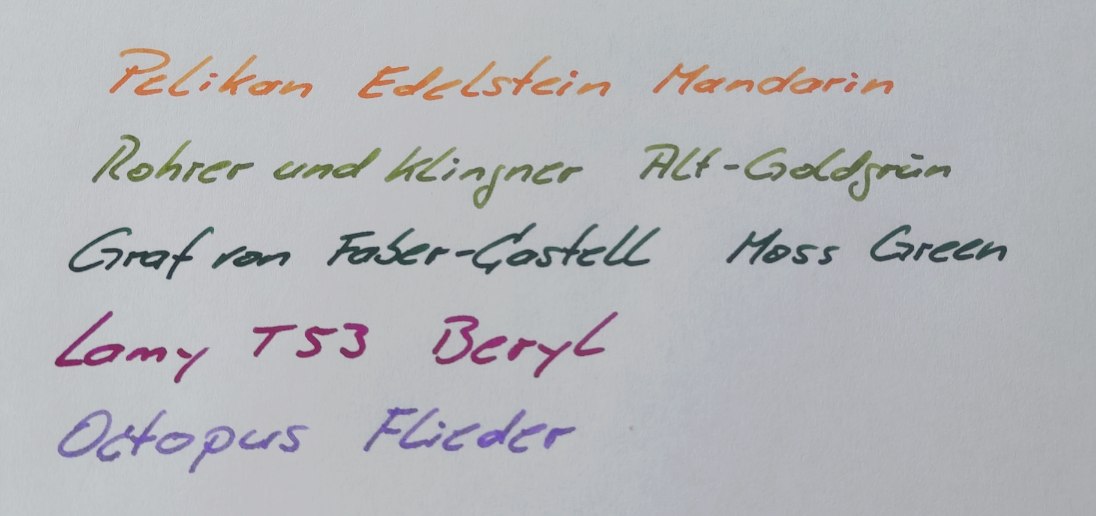 Pelikan Edelstein Mandarin
Rohrer und Klingner Alt-Goldgrün
Graf von Faber-Castell Moss Green
Lamy T53 Beryl
Octopus Flieder